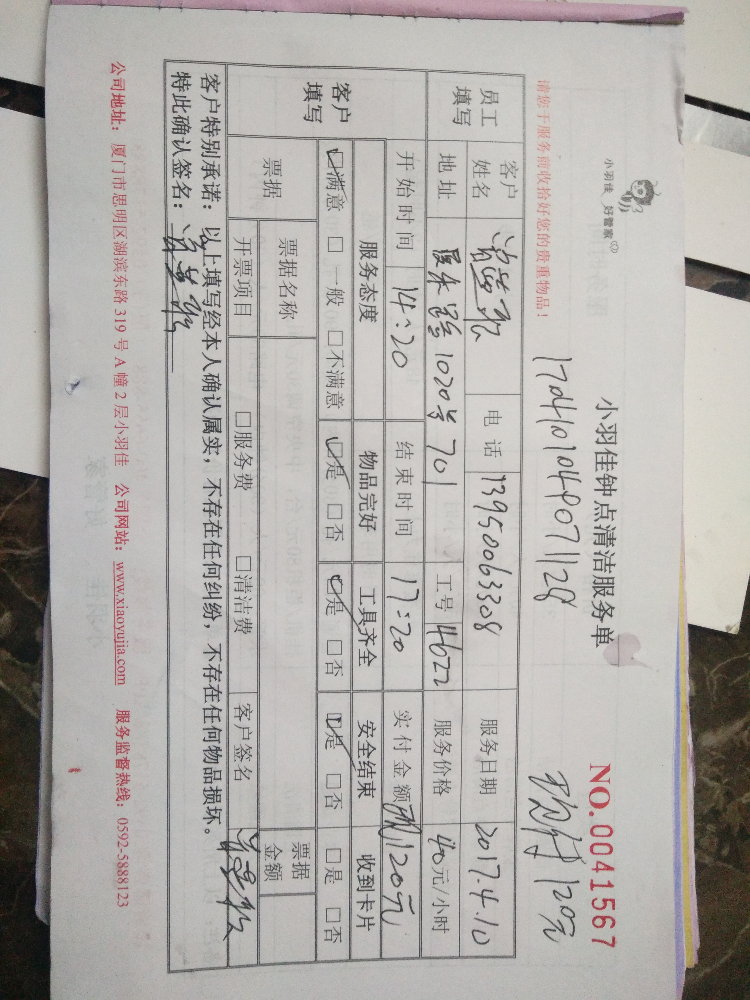 小羽佳 好管家
小羽佳钟点清洁服务单
NO.0041567
1704101049071128
现付120元
请您于服务前收拾好您的贵重物品！
员工填写
客户姓名
电话 13950063308
服务日期 2017.4.10
地址 1020号701
工号 4622
服务价格 40元/小时
客户填写
开始时间 14:20
结束时间 17:20
实付金额 现120元
服务态度 物品完好 工具齐全 安全结束 收到卡片
☑满意 □一般 □不满意 ☑是 □否 ☑是 □否 ☑是 □否 □是 □否
票据 票据名称 票据金额
开票项目 □服务费 □清洁费 客户签名
客户特别承诺：以上填写经本人确认属实，不存在任何纠纷，不存在任何物品损坏。
特此确认签名：
公司地址：厦门市思明区湖滨东路 319 号 A 幢 2 层小羽佳 公司网站：www.xiaoyujia.com 服务监督热线：0592-5888123